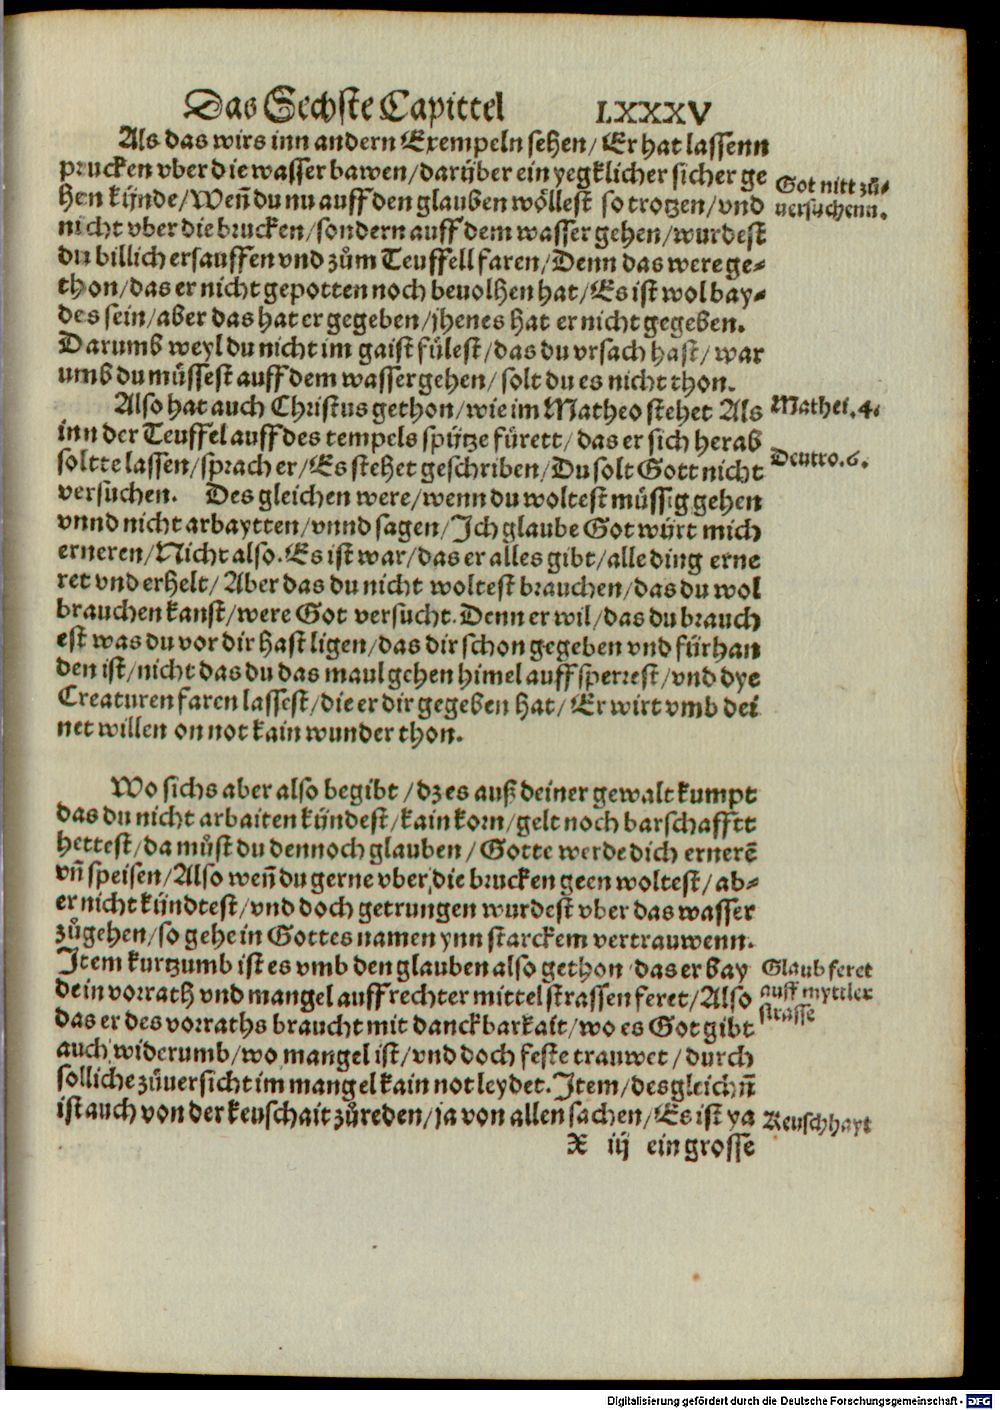 Das Sechste Capittel LXXXV
Als das wirs inn andern Exempeln sehen/ Er hat lassenn
prucken vber die wasser bawen/darüber ein yegklicher sicher ge
hen künde/Weñ du nu auff den glauben wöllest so trotzen/vnd
nicht vber die brucken/sondern auff dem wasser gehen/wurdest
du billich ersauffen vnd zům Teuffell faren/Denn das were ge-
thon/das er nicht gepotten noch beuolhen hat/Es ist wol bay-
des sein/aber das hat er gegeben/jhenes hat er nicht gegeben.
Darumb weyl du nicht im gaist fülest/das du vrsach hast/ war
umb du müssest auff dem wasser gehen/ solt du es nicht thon.
Got nitt zů-
uersuchenn.
Also hat auch Christus gethon/wie im Matheo stehet Als
inn der Teuffel auff des tempels spytze fürett/ das er sich herab
soltte lassen/sprach er/Es stehet geschriben/Du solt Gott nicht
versuchen. Des gleichen were/wenn du woltest müssig gehen
vnnd nicht arbaytten/vnnd sagen/Ich glaube Got würt mich
erneren/Nicht also. Es ist war/das er alles gibt/alle ding erne
ret vnd erhelt/ Aber das du nicht woltest brauchen/das du wol
brauchen kanst/were Got versucht. Denn er wil/das du brauch
est was du vor dir hast ligen/das dir schon gegeben vnd fürhan
den ist/nicht das du das maul gehen himel auff sperrest/vnd dye
Creaturen faren lassest/die er dir gegeben hat/ Er wirt vmb dei
net willen on not kain wunder thon.
Mathei.4.
Deutro.6.
Wo sichs aber also begibt/dz es auß deiner gewalt kumpt
das du nicht arbaiten kündest/kain korn/gelt noch barschafftt
hettest/da můst du dennoch glauben/ Gotte werde dich ernerẽ
vñ speisen/Also weñ du gerne vber die brucken geen woltest/ab-
er nicht kündtest/vnd doch getrungen wurdest vber das wasser
zůgehen/so gehe in Gottes namen ynn starckem vertrauwenn.
Item kurtzumb ist es vmb den glauben also gethon das er bay
de in vorrath vnd mangel auff rechter mittel strassen feret/Also
das er des vorraths braucht mit danckbarkait/wo es Got gibt
auch widerumb/wo mangel ist/vnd doch feste trauwet/durch
solliche zůuersicht im mangel kain not leydet. Item/desgleichñ
ist auch von der keuschait zůreden/ja von allen sachen/Es ist ya
Glaub feret
auff myttler
strasse
Keuschhayt
X iij ein grosse
Digitalisierung gefördert durch die Deutsche Forschungsgemeinschaft - DFG